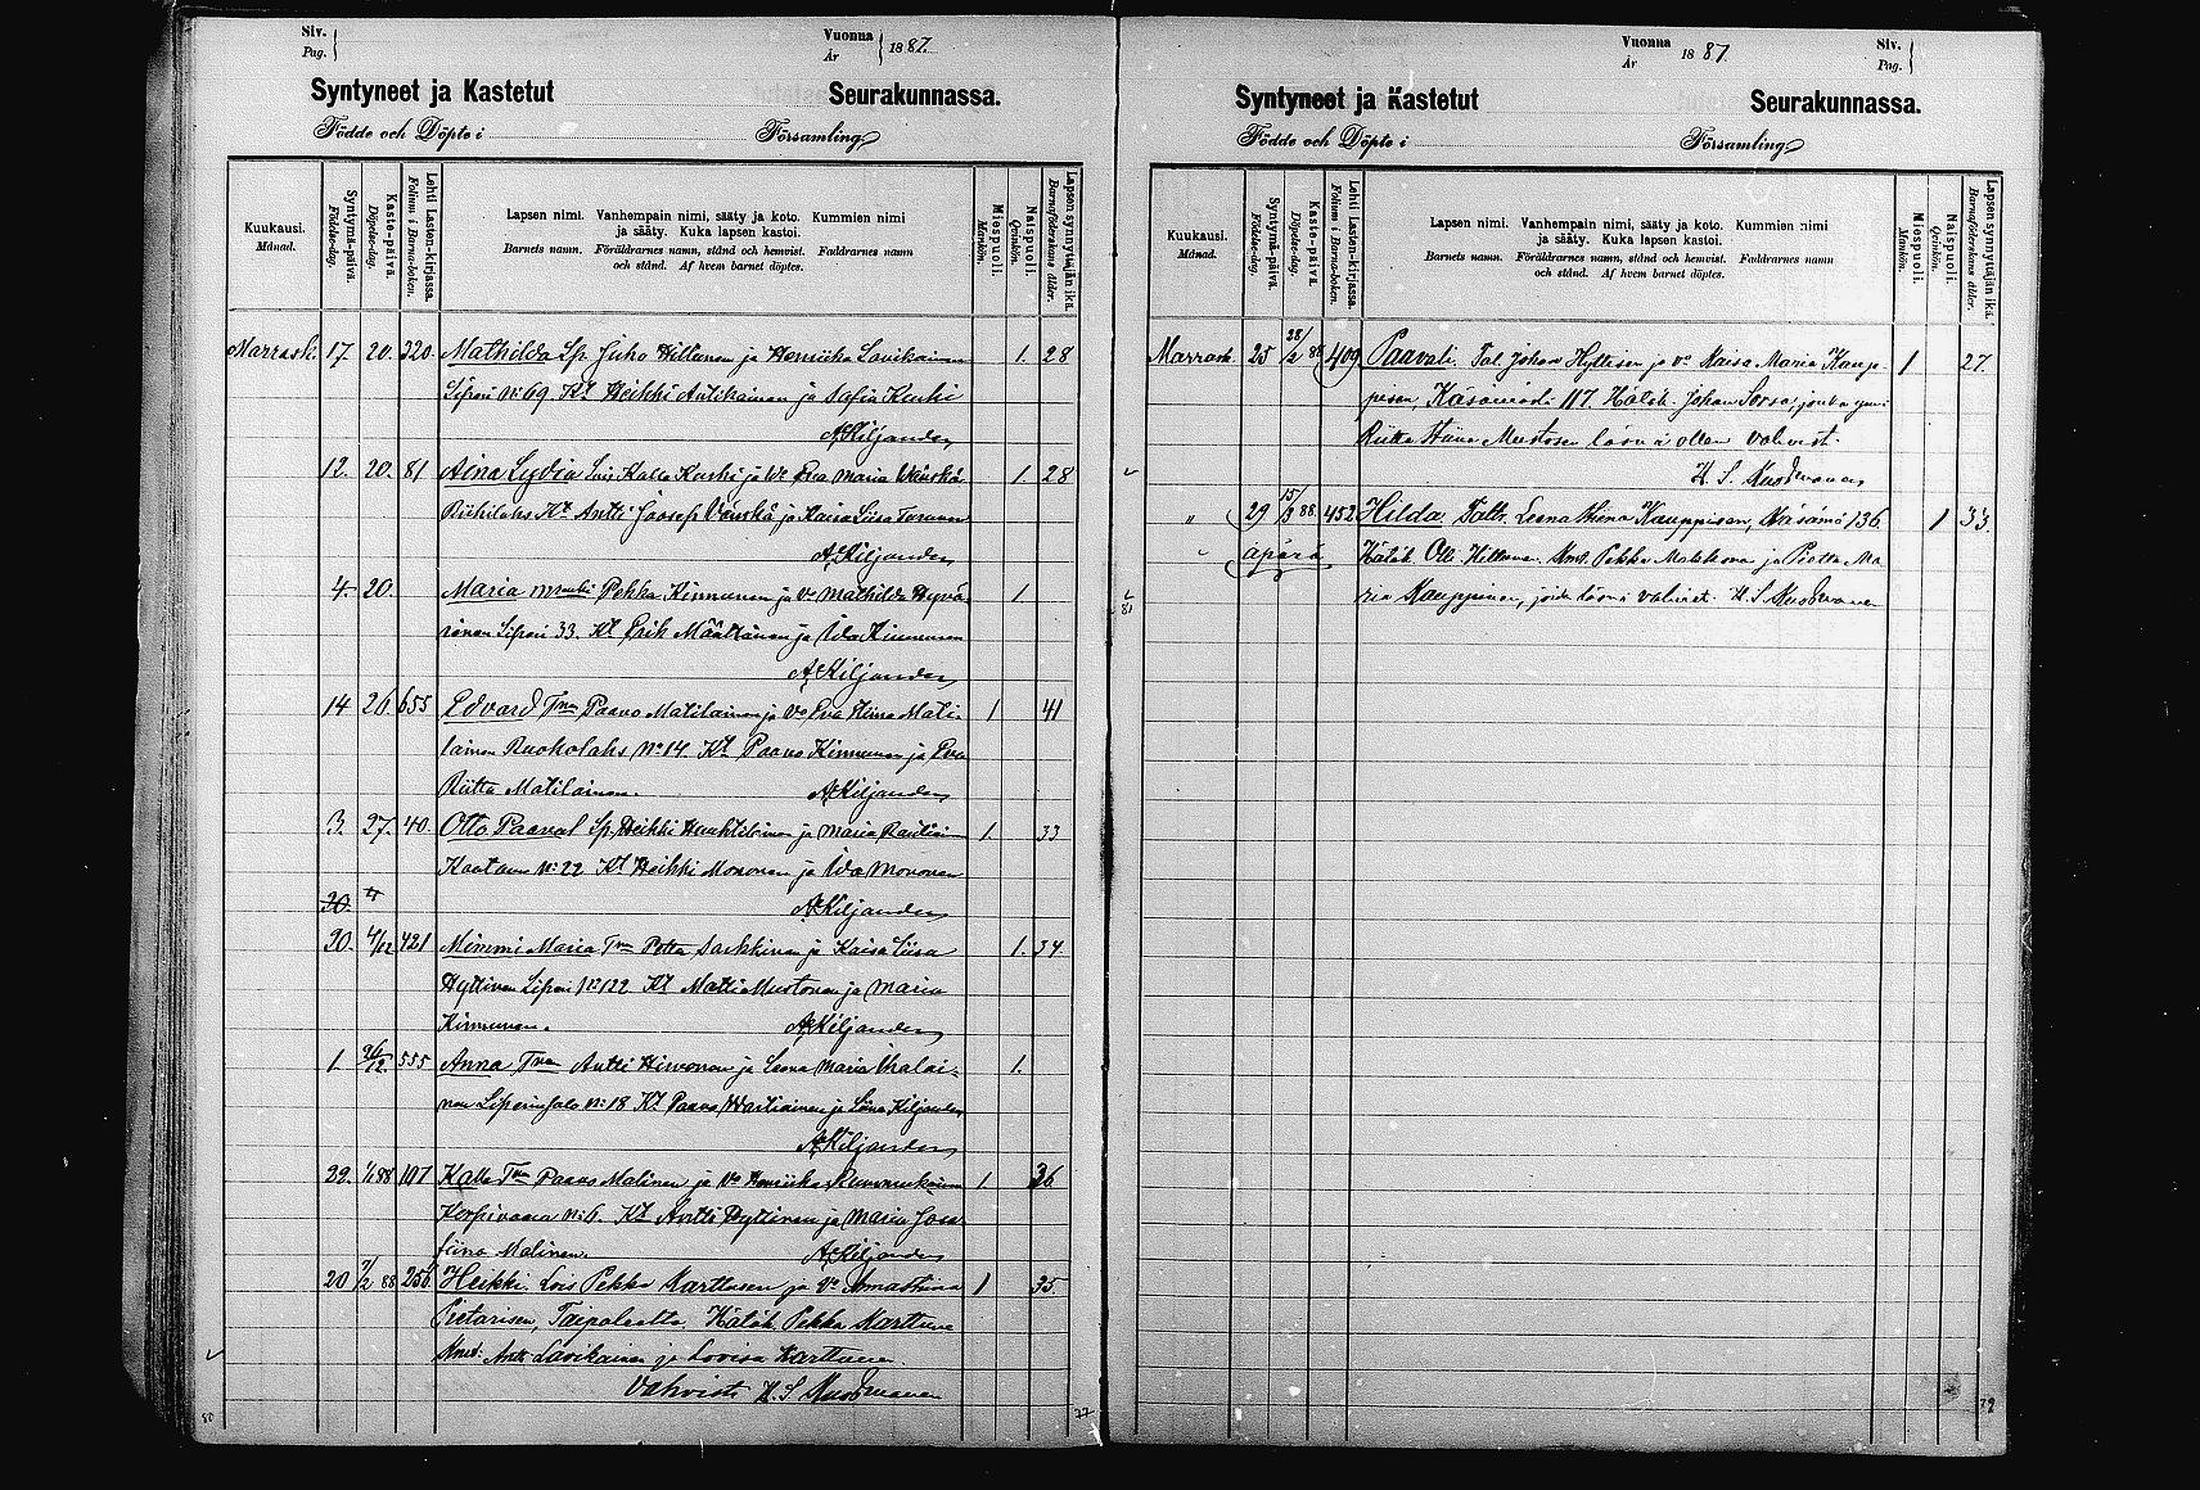 Siv.
Pag.
Vuonna
År
1887.
Syntyneet ja Kastetut Seurakunnassa.
Födde och Döpte i Församling
Kuukausi.
Månad.
Syntymä-päivä.
Födelse-dag.
Kaste-päivä.
Döpelse-dag.
Lehti Lasten-kirjassa.
Folium i Barna-boken.
Lapsen nimi. Vanhempain nimi, sääty ja koto. Kummien nimi
ja sääty. Kuka lapsen kastoi.
Barnets namn. Föräldrarnes namn, stånd och hemvist. Faddrarnes namn
och stånd. Af hvem barnet döptes.
Miespuoli.
Mankön.
Naispuoli.
Qvinkön.
Lapsen synnyttäjän ikä.
Barnaföderskans ålder.
Marrask. 17. 20. 320. Mathilda Sp. Juho Hiltunen ja Henriika Lavikainen 1. 28
Liperi N:69 Kt Heikki Antikainen ja Safia Kuski
A Kiljander
12. 20. 81 Aina Lydia Kalle Kuski ja Vo Eva Maria Vänskä 1. 28
Riihilahs Kt Antti Joosep Vänskä ja Kaisa Liisa Turunen
A Kiljander
4. 20. Maria Pekka Kinnunen ja Vo Mathilda Hyvä- 1.
rinen Liperi 33. Kt Erik Määttänen ja Ida Kinnunen
A Kiljander
14 26. 655 Edvard Tnen Paavo Matilainen ja Vo Eva Stiina Mati- 1 41
lainen Ruokolahs No 14. Kt Paavo Kinnunen ja Eva
Riitta Matilainen. A Kiljander
3. 27. 40. Otto Paaval Sp. Heikki Huuhtilainen ja Maria Rautiain 1. 33
Kaatamo N:22 Kt Heikki Mononen ja Ida Mononen
20. A Kiljander
20. 4/12 421 Mimmi Maria Tnen Petter Sarkkinen ja Kaisa Liisa 1. 34.
Hyttinen Liperi No 122 Kt Matti Mustonen ja Maria
Kinnunen. A Kiljander
1. 26/12. 555 Anna Tnen Antti Hirvonen ja Leena Maria Ihalai= 1.
nen Liperinsalo N:18 Kt Paavo Wartiainen ja Kiljander
A Kiljander
22. 1/1 88 107 Kalle Tnen Paavo Malinen ja Vo Henriika 1. 36
Korpivaara N:6. Kt Antti Hyttinen ja Maria Jose
fiina Malinen. A Kiljander
20 7/2 88 256 Heikki. Lois Pekka Karttusen ja Vo Anna Stiina 1 35.
Pietarisen, Taipaleelta. Hätäk. Pekka Karttune
Kmit: Antti Lavikainen ja Lovisa Karttunen.
Vahvisti H. S. Kuosmanen
80
77
Vuonna
År
1887.
Siv.
Pag.
Syntyneet ja Kastetut Seurakunnassa.
Födde och Döpte i Församling
Kuukausi.
Månad.
Syntymä-päivä.
Födelse-dag.
Kaste-päivä.
Döpelse-dag.
Lehti Lasten-kirjassa.
Folium i Barna-boken.
Lapsen nimi. Vanhempain nimi, sääty ja koto. Kummien nimi
ja sääty. Kuka lapsen kastoi.
Barnets namn. Föräldrarnes namn, stånd och hemvist. Faddrarnes namn
och stånd. Af hvem barnet döptes.
Miespuoli.
Mankön.
Naispuoli.
Qvinkön.
Lapsen synnyttäjän ikä.
Barnaföderskans ålder.
Marrask. 25 28/2 88 409 Paavali. Tal. Johan Hyttisen ja Vo Kaisa Maria Kaup- 1 27.
pisen, Käsämästä 117. Hätäk. Johan Sorsa, jonka
Riitta Stiina Mustosen läsnä ollen vahvist.
H. S. Kuosmanen
" 29 15/3 88. 452 Hilda. Taltr. Leena Stiina Kauppisen, Käsämä 136. 1 33.
" äpärä Hätäk. Olli Hiltunen. Kmit. Pekka Malkkonen ja Pietta Ma
ria Kauppinen, joiden läsnä vahvist. H. S. Kuosmanen
81
79